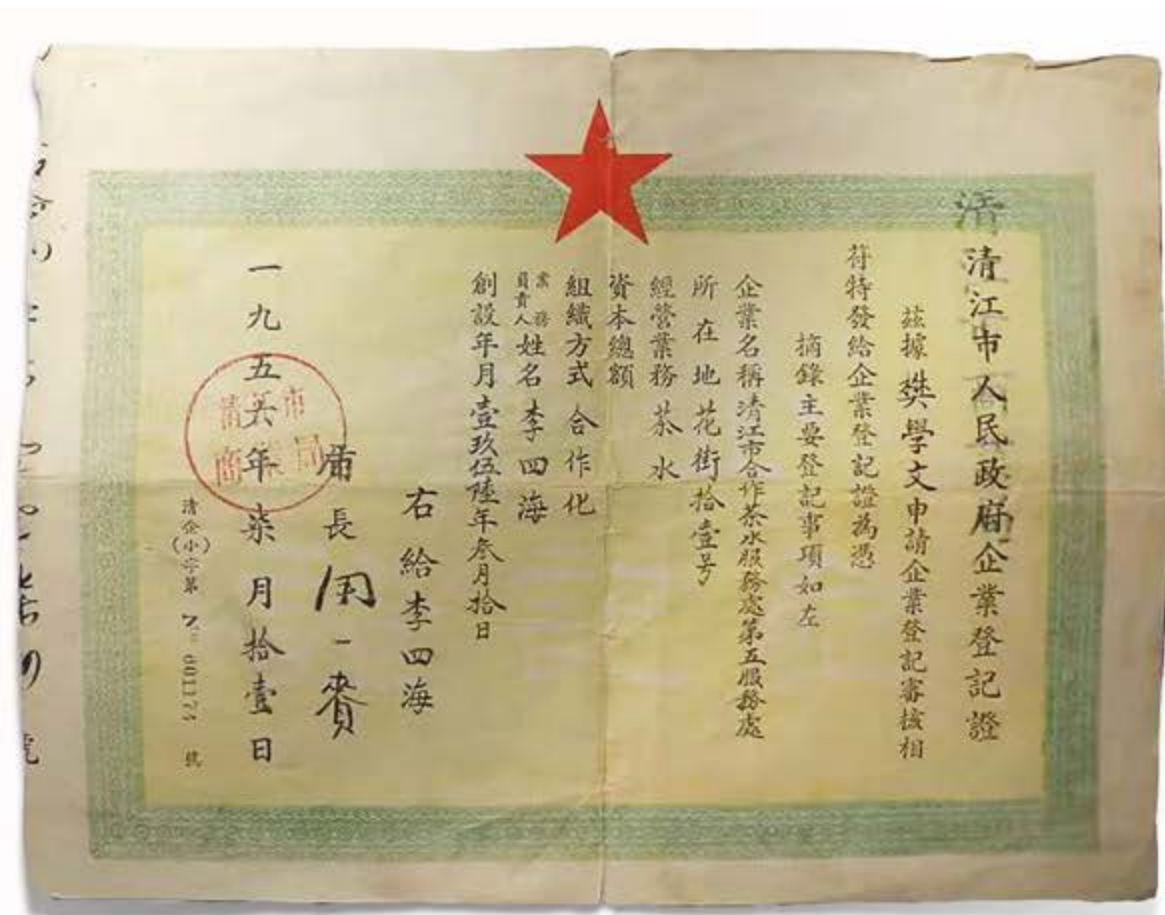 清江市人民政府企業登記證
茲據樊學文申請企業登記審核相
符特發給企業登記證為憑
摘錄主要登記事項如左
企業名稱清江市合作茶水服務處第五服務處
所在地花街拾壹号
經營業務茶水
資本總額
組織方式合作化
業務負責人姓名李四海
創設年月壹玖伍陸年叁月拾日
右給李四海
市長
一九五六年柒月拾壹日
清企(小)字第 號